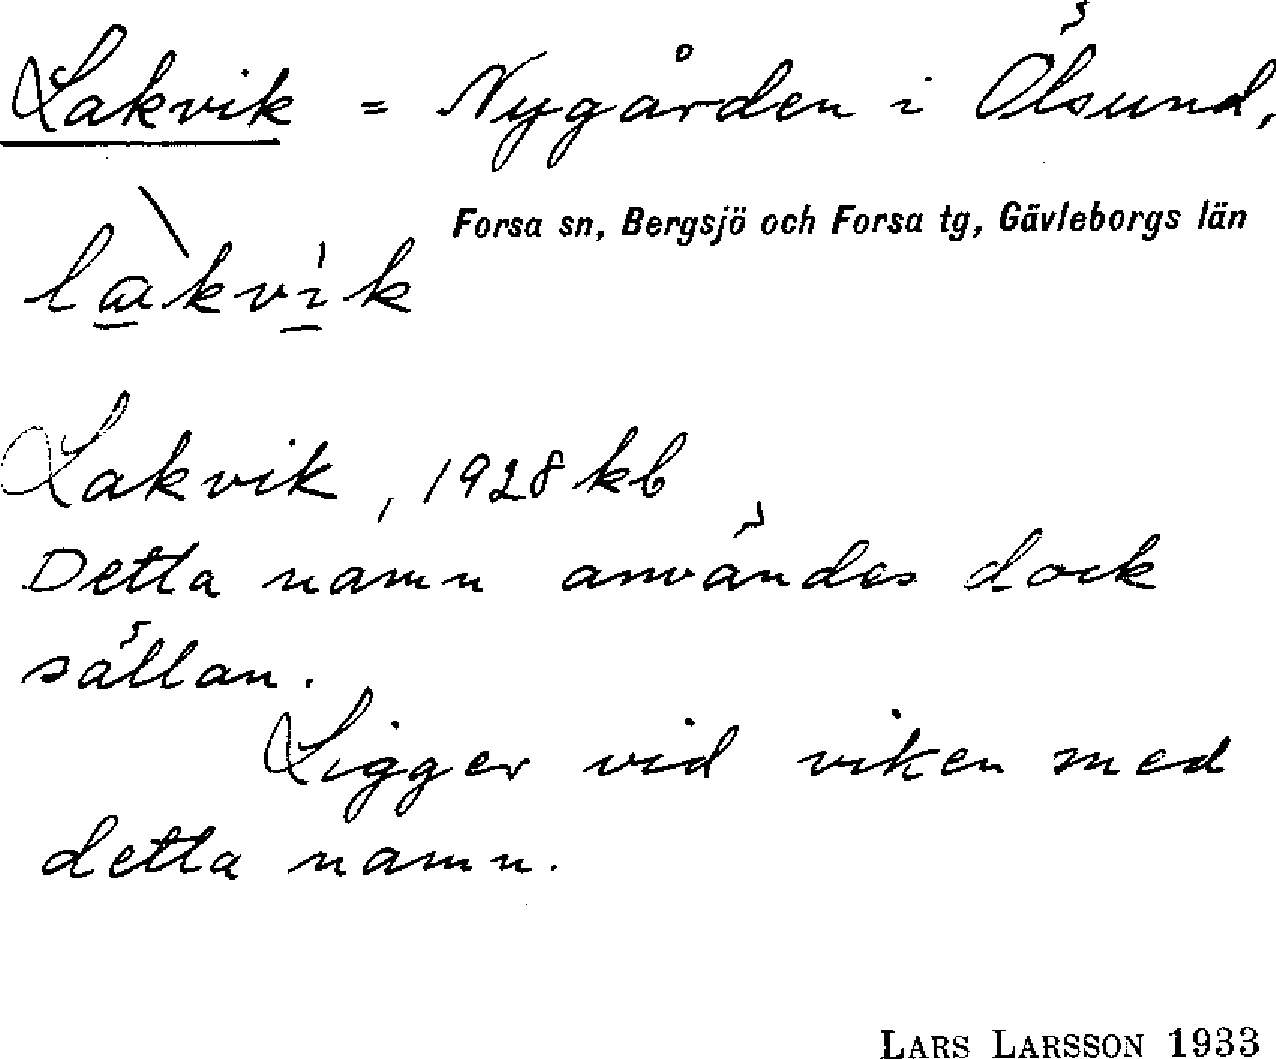 Lakvik = Nygården i Ölsund,
Forsa sn, Bergsjö och Forsa tg, Gävleborgs län
Lakvik, 1928 kb
Detta namn användes dock
sällan.
Ligger vid viken med
detta namn.
LARS LARSSON 1933